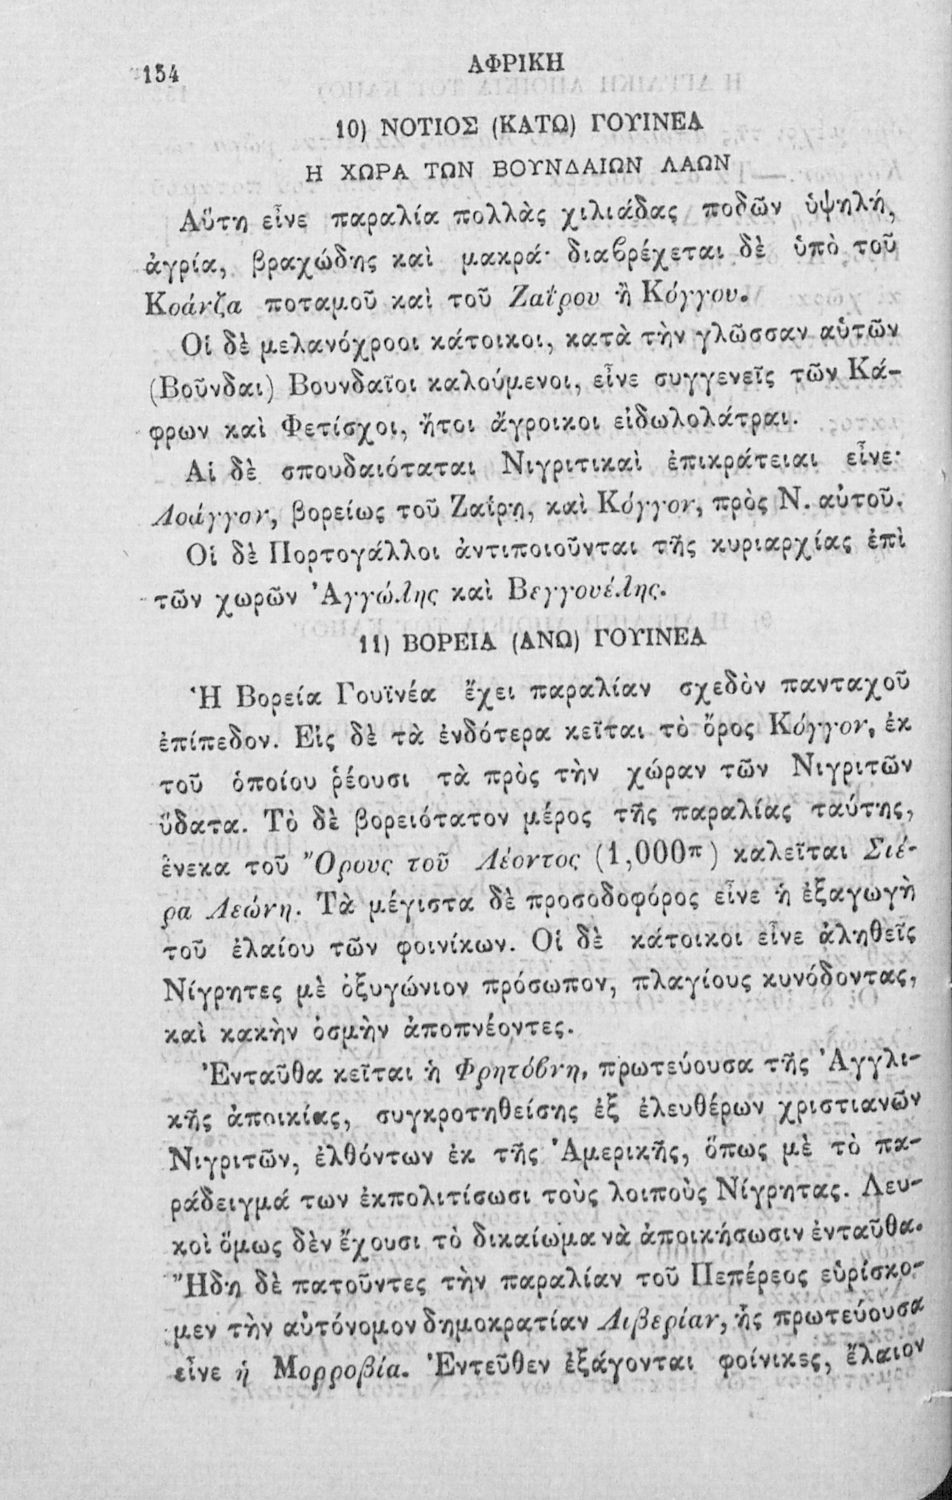 154
ΑΦΡΙΚΗ
10) ΝΟΤΙΟΣ (ΚΑΤΩ) ΓΟΥΙΝΕΑ
Η ΧΩΡΑ ΤΩΝ ΒΟΥΝΔΑΙΩΝ ΛΑΩΝ
Αὕτη εἶνε παραλία πολλὰς χιλιάδας ποδῶν ὑψηλή,
ἀγρία, βραχώδης καὶ μακρά· διαβρέχεται δὲ ὑπὸ τοῦ
Κοάνζα ποταμοῦ καὶ τοῦ Ζαΐρου ἢ Κόγγου.
Οἱ δὲ μελανόχροοι κάτοικοι, κατὰ τὴν γλῶσσαν αὐτῶν
(Βοῦνδαι) Βουνδαῖοι καλούμενοι, εἶνε συγγενεῖς τῶν Κά-
φρων καὶ Φετίσχοι, ἤτοι ἄγροικοι εἰδωλολάτραι.
Αἱ δὲ σπουδαιόταται Νιγριτικαὶ ἐπικράτειαι εἶνε·
Λοάγγον, βορείως τοῦ Ζαΐρη, καὶ Κόγγον, πρὸς Ν. αὐτοῦ.
Οἱ δὲ Πορτογάλλοι ἀντιποιοῦνται τῆς κυριαρχίας ἐπὶ
τῶν χωρῶν Ἀγγώλης καὶ Βεγγουέλης.
11) ΒΟΡΕΙΑ (ΑΝΩ) ΓΟΥΙΝΕΑ
Ἡ Βορεία Γουϊνέα ἔχει παραλίαν σχεδὸν πανταχοῦ
ἐπίπεδον. Εἰς δὲ τὰ ἐνδότερα κεῖται τὸ ὄρος Κόγγον, ἐκ
τοῦ ὁποίου ῥέουσι τὰ πρὸς τὴν χώραν τῶν Νιγριτῶν
ὕδατα. Τὸ δὲ βορειότατον μέρος τῆς παραλίας ταύτης,
ἕνεκα τοῦ Ὄρους τοῦ Λέοντος (1,000π) καλεῖται Σιέ-
ρα Λεώνη. Τὰ μέγιστα δὲ προσοδοφόρος εἶνε ἡ ἐξαγωγὴ
τοῦ ἐλαίου τῶν φοινίκων. Οἱ δὲ κάτοικοι εἶνε ἀληθεῖς
Νίγρητες μὲ ὀξυγώνιον πρόσωπον, πλαγίους κυνόδοντας,
καὶ κακὴν ὀσμὴν ἀποπνέοντες.
Ἐνταῦθα κεῖται ἡ Φρητόβνη, πρωτεύουσα τῆς Ἀγγλι-
κῆς ἀποικίας, συγκροτηθείσης ἐξ ἐλευθέρων χριστιανῶν
Νιγριτῶν, ἐλθόντων ἐκ τῆς Ἀμερικῆς, ὅπως μὲ τὸ πα-
ράδειγμά των ἐκπολιτίσωσι τοὺς λοιποὺς Νίγρητας. Λευ-
κοὶ ὅμως δὲν ἔχουσι τὸ δικαίωμα νὰ ἀποικήσωσιν ἐνταῦθα.
Ἤδη δὲ πατοῦντες τὴν παραλίαν τοῦ Πεπέρεος εὑρίσκο-
μεν τὴν αὐτόνομον δημοκρατίαν Λιβερίαν, ἧς πρωτεύουσα
εἶνε ἡ Μορροβία. Ἐντεῦθεν ἐξάγονται φοίνικες, ἔλαιον